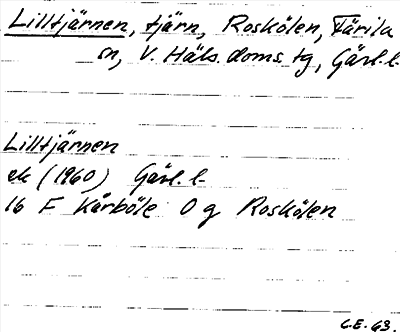 Lilltjärnen, tjärn, Roskölen, Färila
sn, V. Häls. doms. tg, Gävl. l.
Lilltjärnen
ek (1960) Gävl. l.
16 F Kårböle O g Roskölen
C.E. 63.